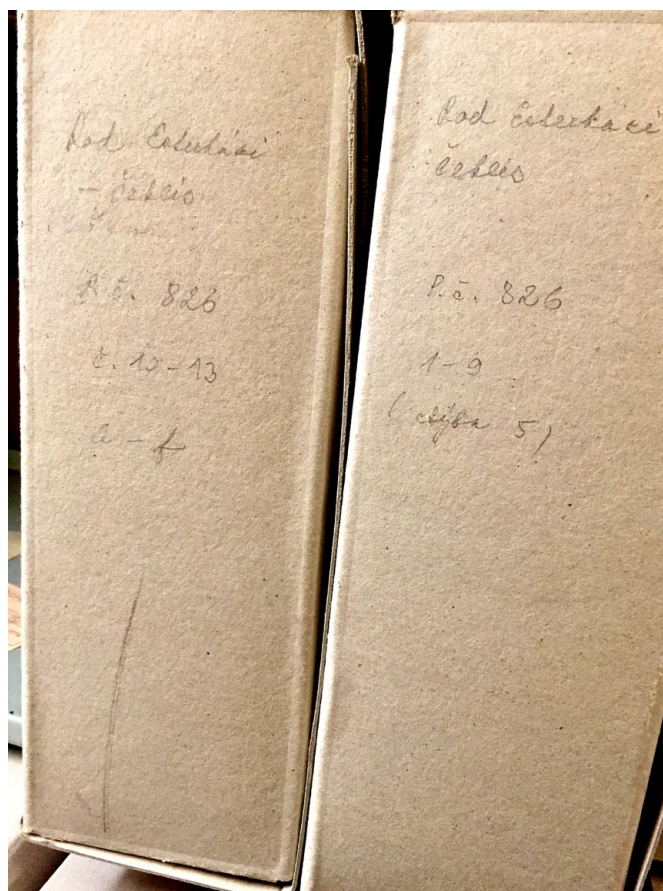 Rod Esterházi
- Čeklís
P.č. 826
č. 10-13
a - f
Rod Esterházi
Čeklís
P.č. 826
1-9
(chýba 5)